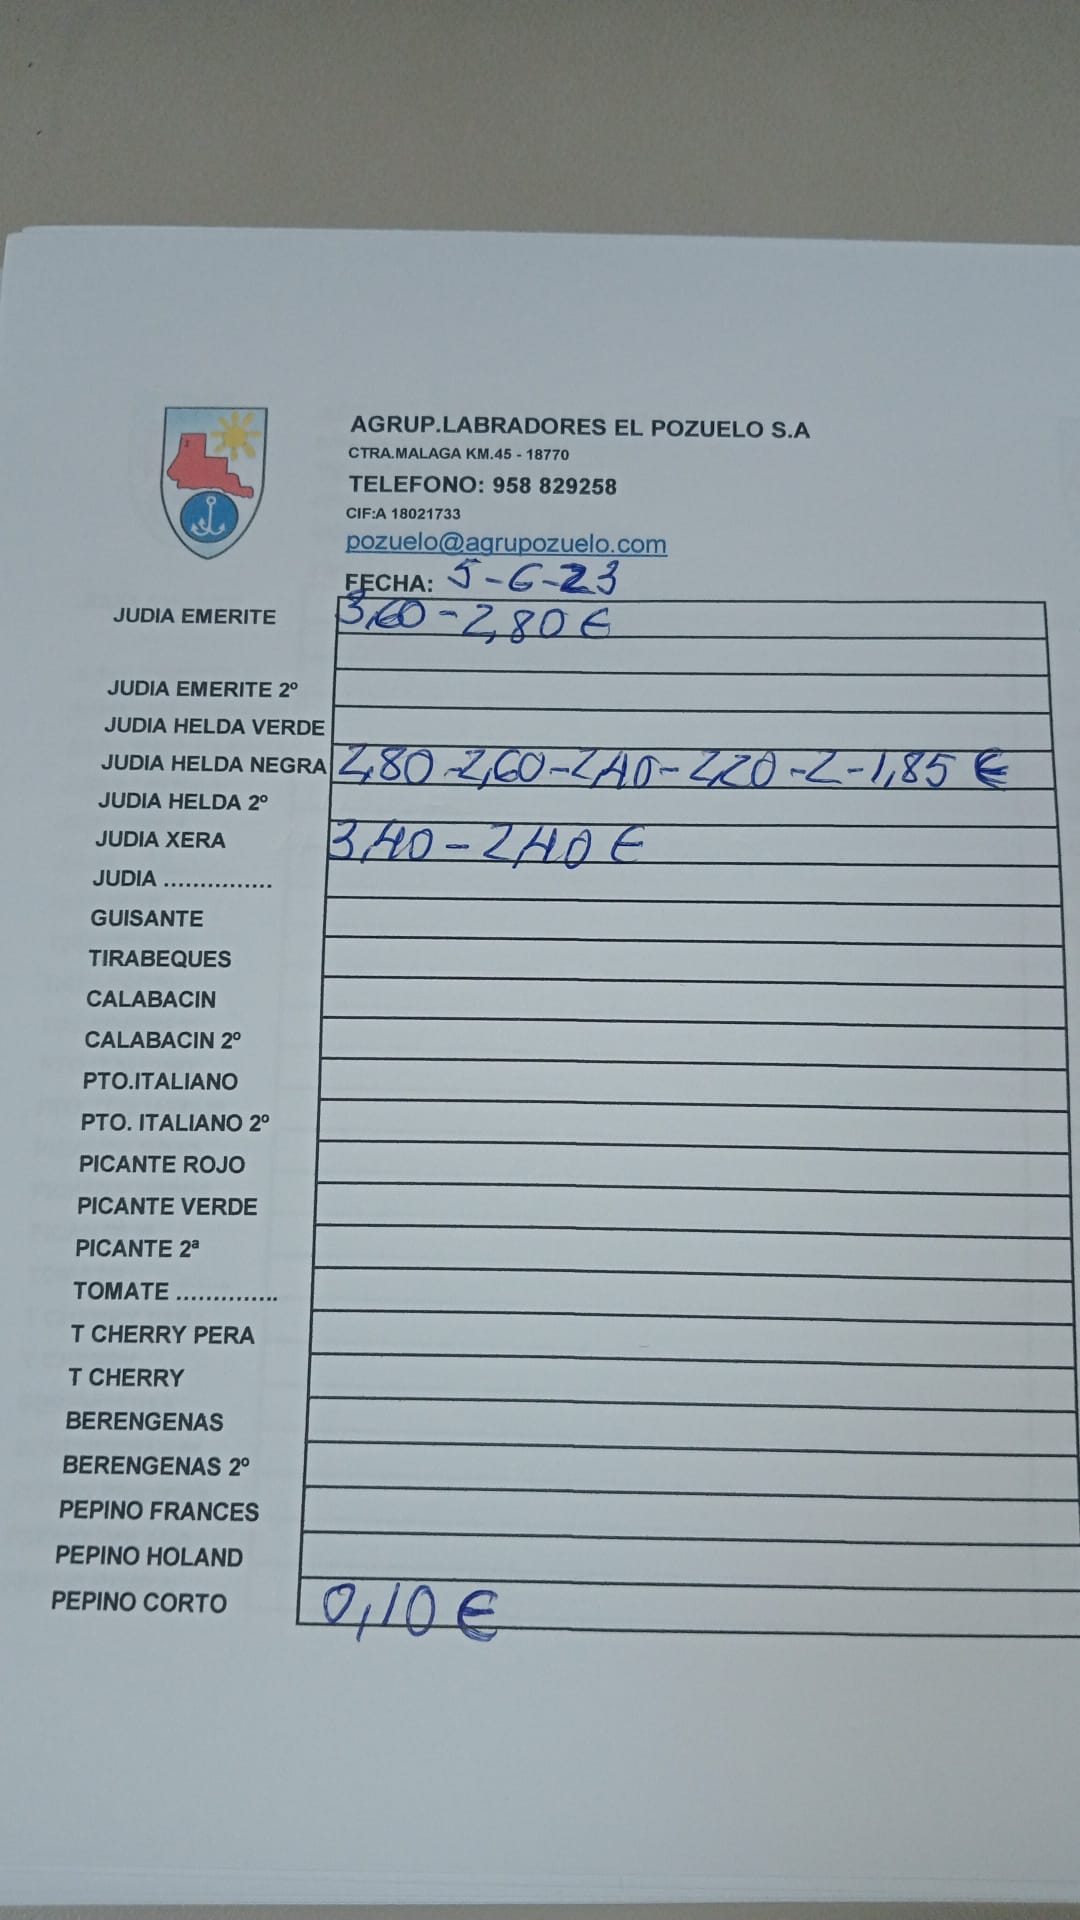 AGRUP.LABRADORES EL POZUELO S.A
CTRA.MALAGA KM.45 - 18770
TELEFONO: 958 829258
CIF:A 18021733
pozuelo@agrupozuelo.com
FECHA: 5-6-23
JUDIA EMERITE 3,60 - 2,80 €
JUDIA EMERITE 2º
JUDIA HELDA VERDE
JUDIA HELDA NEGRA 2,80 - 2,60 - 2,40 - 2,20 - 2 - 1,85 €
JUDIA HELDA 2º
JUDIA XERA 3,40 - 2,40 €
JUDIA ...............
GUISANTE
TIRABEQUES
CALABACIN
CALABACIN 2º
PTO.ITALIANO
PTO. ITALIANO 2º
PICANTE ROJO
PICANTE VERDE
PICANTE 2ª
TOMATE ..............
T CHERRY PERA
T CHERRY
BERENGENAS
BERENGENAS 2º
PEPINO FRANCES
PEPINO HOLAND
PEPINO CORTO 0,10 €